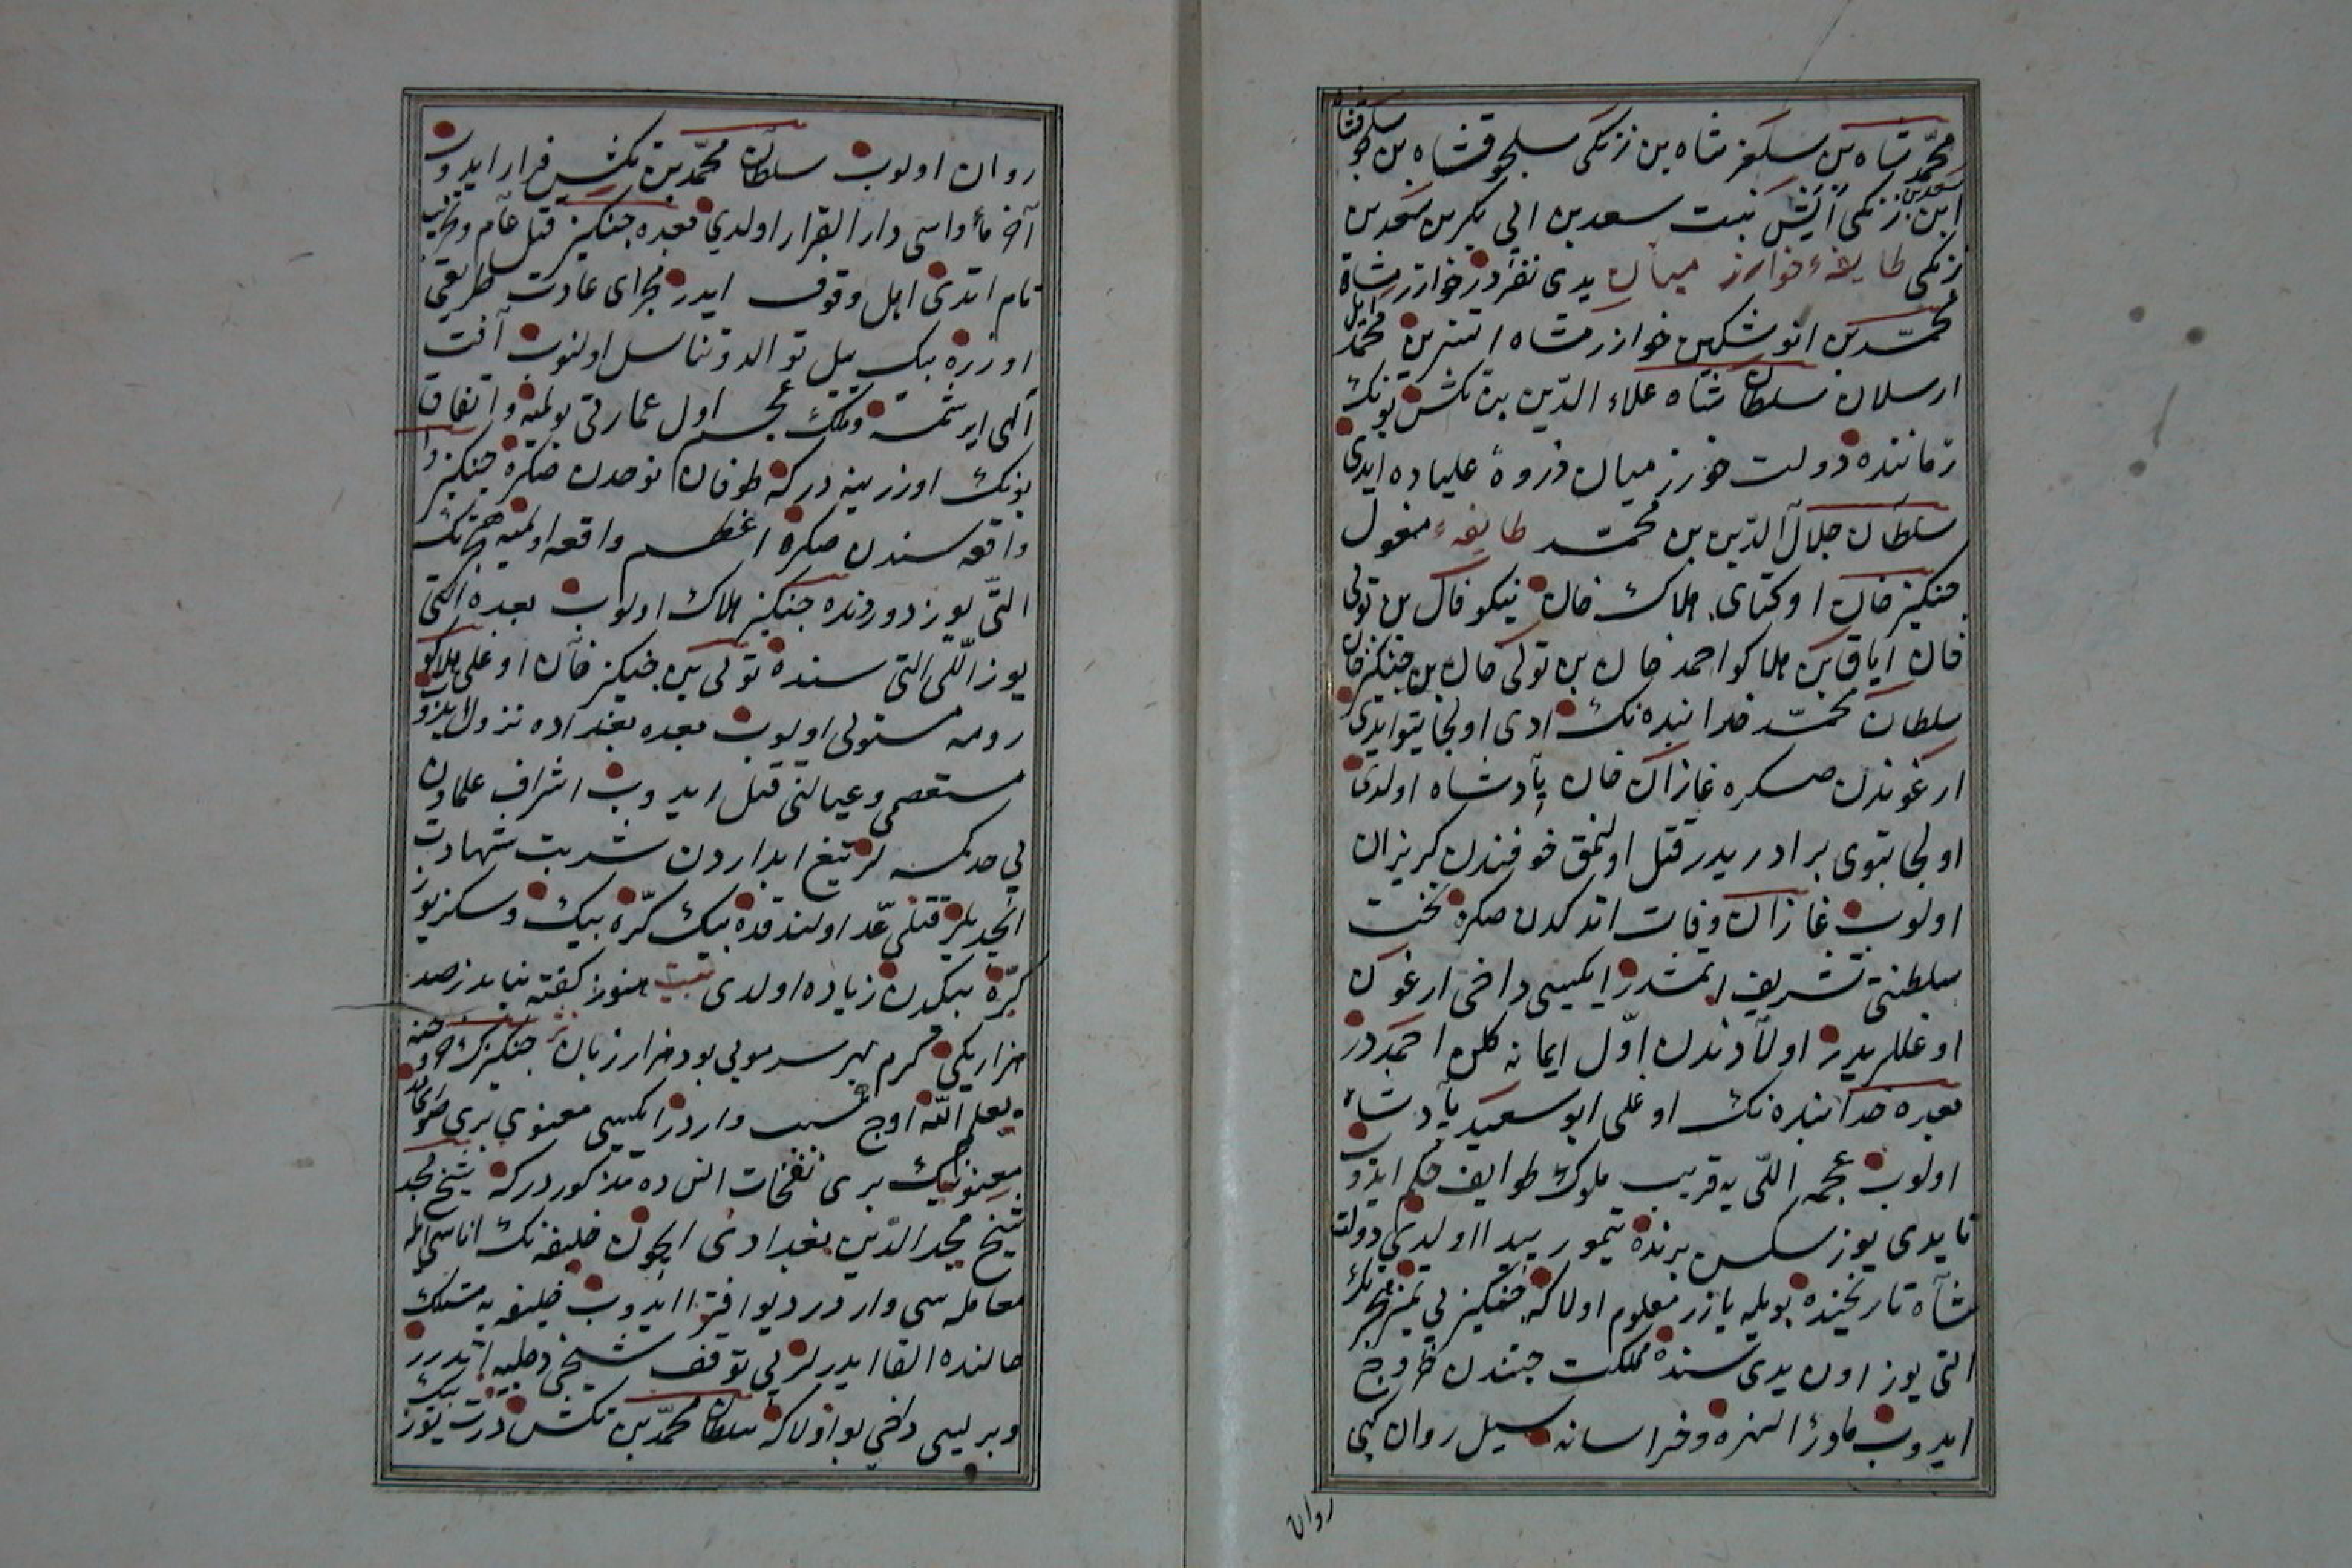 محمّد شاه بن سلغر شاه بن زنكی سلجوقشاه بن سلجوقشاه
ابن سعد بن زنكی آبش بنت سعد بن ابی بكر بن سعد بن
زنكی طایفهٔ خوارزمیان یدی نفردر خوارزمشاه
محمّد بن انوشتكین خوارزمشاه اتسز بن محمّد ایل
ارسلان سلطان شاه علاء الدّین بن تكش بونك
زماننده دولت خوارزمیان ذروهٔ علیاده ایدی
سلطان جلال الدّین بن محمّد طایفهٔ مغول
جنكیز خان اوكتای هلاكت خان نیكو قاآن بن تولی
خان ایاق بن هلاكو احمد خان بن تولی خان بن جنكیز خان
سلطان محمّد خدا بنده نك ادی اولجایتو ایدی
ارغوندن صكره غازان خان پادشاه اولدی
اولجایتوی برادریدر قتل اولنمق خوفندن كریزان
اولوب غازان وفات اتدكدن صكره تخت
سلطنتی تشریف اتمشدر ایكیسی داخی ارغون
اوغللریدر اولاددندن اوّل ایمانه كلن احمددر
بعده خدا بنده نك اوغلی ابو سعید پادشاه
اولوب عجمه اللّی یه قریب ملوك طوایف حكم ایدوب
تا یدی یوز سكسن برنده تیمور پیدا اولدی دولت
شاه تاریخنده بویله یازر معلوم اولا كه جنكیز بی تمیز هجرتك
التی یوز اون یدی سنده مملكت جتندن خروج
ایدوب ماورا النهره و خراسانه سیل روان كبی
روان
روان اولوب سلطان محمّد بن تكش فرار ایدوب
آخر مأواسی دار القرار اولدی بعده جنكیز قتل عام و تخریب
تام اتدی اهل وقوف ایدر مجرای عادت طریقی
اوزره بیك ییل توالد و تناسل اولنوب آفت
الهی ایرشمسه ملك عجم اول عمارتی بولمیه و اتفاق
بونك اوزرینه دركه طوفان نوحدن صكره جنكیز
واقعه سندن صكره اعظم واقعه اولمیه هجرتك
التّی یوز دوردنده جنكیز هلاك اولوب بعده التی
یوز اللّی التی سنده تولی بن جنكیز خان اوغلی هلاكو
رومه مستولی اولوب بعده بغداده نزول ایدوب
مستعصمی و عیالنی قتل ایدوب اشراف علمادن
بی حد كمسه لر تیغ ابداردن شربت شهادت
ایچدیلر قتلی عدّ اولندقده بیك كرّه بیك و سكز یوز
كرّه بیكدن زیاده اولدی بیت هنوز كفته نیاید ز صد
هزار یكی كرم بهر سر مویی بود هزار زبان جنكیزك
یعلم اللّه اوج سبب واردر ایكیسی معنوی بری صوری
معنونیك بری نفحات النس ده مذكوردركه شیخ نجد
شیخ مجد الدّین بغدادی ایچون خلیفه نك اناسی ایله
معامله سی واردر دیو افترا ایدوب خلیفه یه مستلك
حالنده القا ایدرلر بی توقف شیخی دجلیه اتدرر
و بریسی داخی بو اولا كه سلطان محمّد بن تكش درت یوز بیك